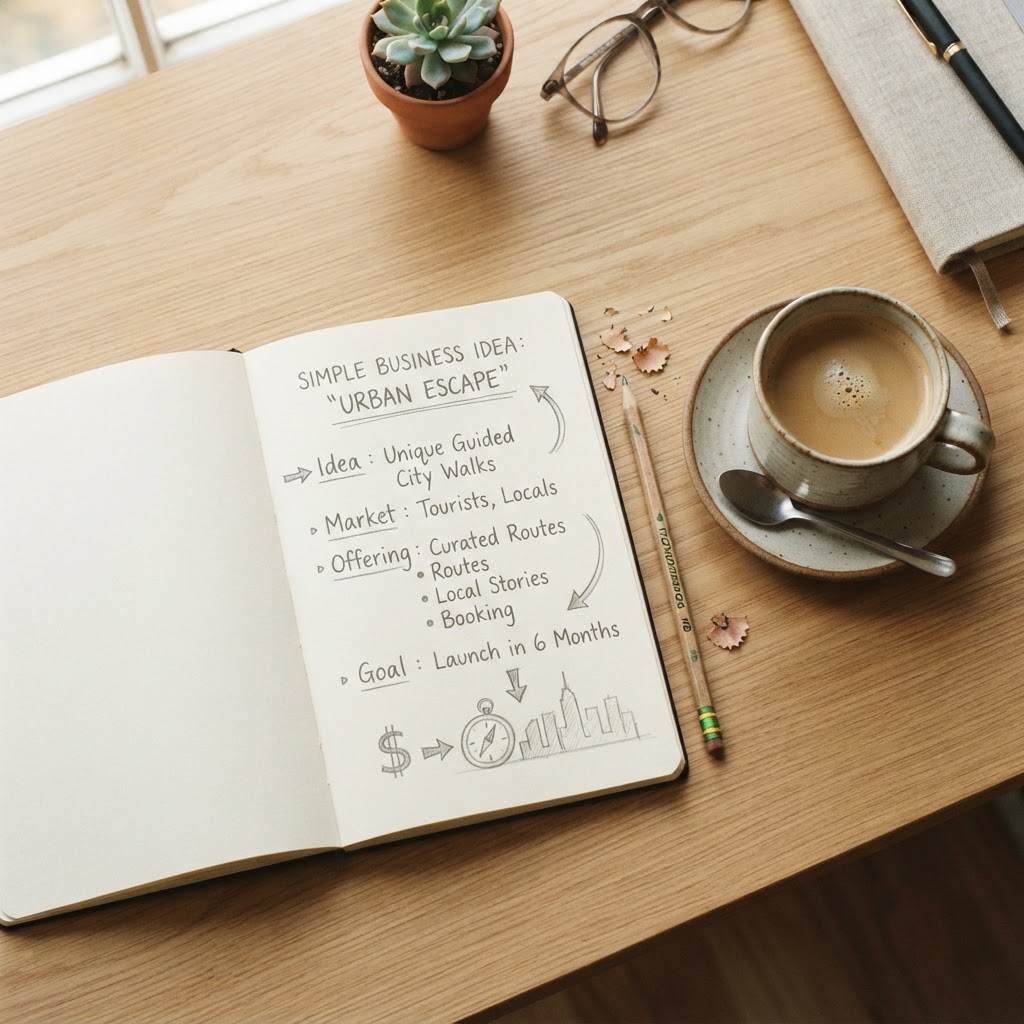 SIMPLE BUSINESS IDEA:
"URBAN ESCAPE"
Idea : Unique Guided
City Walks
Market : Tourists, Locals
Offering : Curated Routes
Routes
Local Stories
Booking
Goal : Launch in 6 Months
$